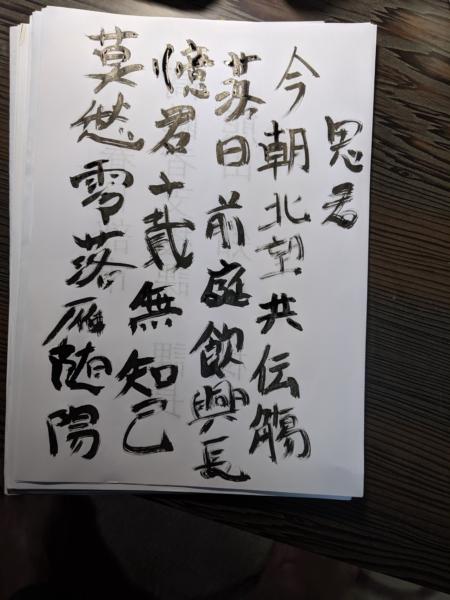 思君
今朝北望共伝觴
日前庭飲興長
憶君十載無知己
莫雪落雁随陽